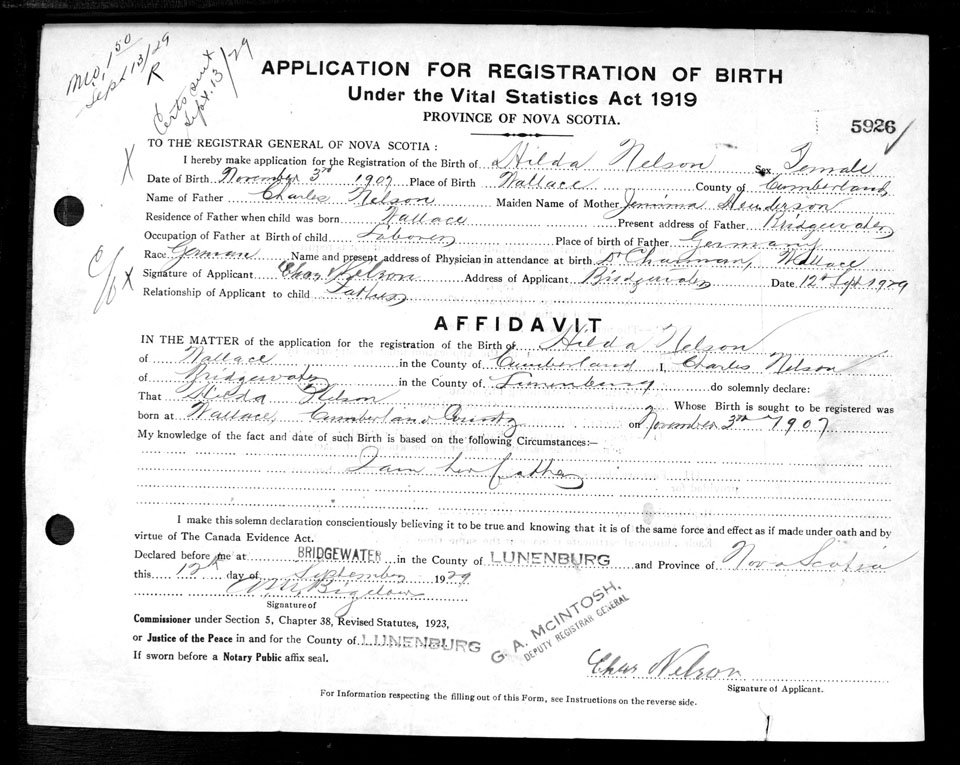 M.O. 1.50
Sept 13/29
R
Certs sent
Sept. 13/29
APPLICATION FOR REGISTRATION OF BIRTH
Under the Vital Statistics Act 1919
PROVINCE OF NOVA SCOTIA.
5926
X
TO THE REGISTRAR GENERAL OF NOVA SCOTIA:
I hereby make application for the Registration of the Birth of Hilda Nelson Sex Female
Date of Birth November 3rd 1907 Place of Birth Wallace County of Cumberland
Name of Father Charles Nelson Maiden Name of Mother Jemima Henderson
Residence of Father when child was born Wallace Present address of Father Bridgewater
Occupation of Father at Birth of child Laborer Place of birth of Father Germany
Race German Name and present address of Physician in attendance at birth Dr Wallace
c/o X
Signature of Applicant Chas Nelson Address of Applicant Bridgewater Date 12th Sept 1929
Relationship of Applicant to child Father
AFFIDAVIT
IN THE MATTER of the application for the registration of the Birth of Hilda Nelson
of Wallace in the County of Cumberland I, Charles Nelson
of Bridgewater in the County of Lunenburg do solemnly declare:
That Hilda Nelson Whose Birth is sought to be registered was
born at Wallace, Cumberland County on November 3rd 1907
My knowledge of the fact and date of such Birth is based on the following Circumstances:—
I am her father
I make this solemn declaration conscientiously believing it to be true and knowing that it is of the same force and effect as if made under oath and by
virtue of The Canada Evidence Act.
Declared before me at BRIDGEWATER in the County of LUNENBURG and Province of Nova Scotia
this 12th day of September 1929
Bigelow
Signature of
Commissioner under Section 5, Chapter 38, Revised Statutes, 1923,
or Justice of the Peace in and for the County of LUNENBURG
If sworn before a Notary Public affix seal.
G. A. McINTOSH,
DEPUTY REGISTRAR GENERAL
Chas Nelson
Signature of Applicant.
For Information respecting the filling out of this Form, see Instructions on the reverse side.